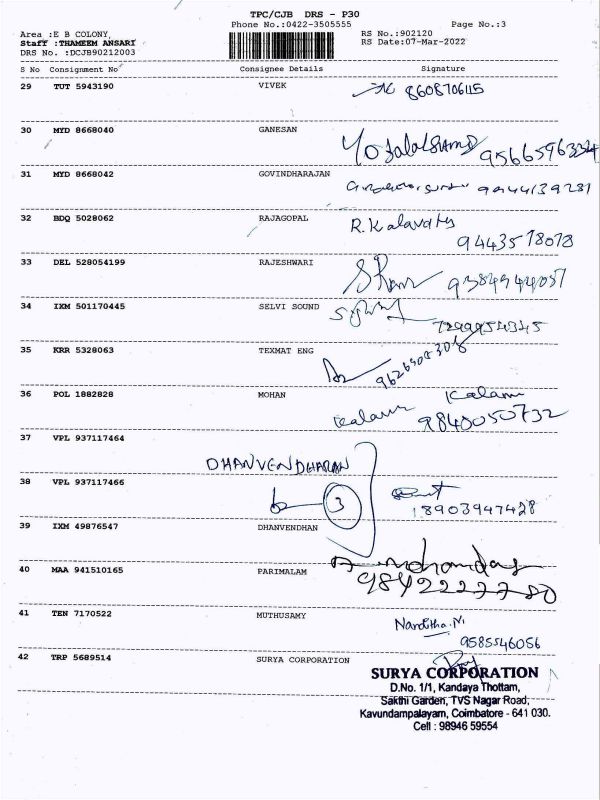 TPC/CJB DRS - P30
Phone No.:0422-3505555 Page No.:3
Area :E B COLONY, RS No.:902120
Staff :THAMEEM ANSARI RS Date:07-Mar-2022
DRS No. :DCJB90212003
S No Consignment No Consignee Details Signature
29 TUT 5943190 VIVEK
8608706115
30 MYD 8668040 GANESAN
31 MYD 8668042 GOVINDHARAJAN
32 BDQ 5028062 RAJAGOPAL R. Kalavathy
9443578078
33 DEL 528054199 RAJESHWARI
34 IXM 501170445 SELVI SOUND
7299954345
35 KRR 5328063 TEXMAT ENG
9626908308
36 POL 1882828 MOHAN Kalam
9840050732
37 VPL 937117464
DHANVENDHARAN
38 VPL 937117466
3 8903947428
39 IXM 49876547 DHANVENDHAN
40 MAA 941510165 PARIMALAM
9842227780
41 TEN 7170522 MUTHUSAMY Nanditha.N
9585546056
42 TRP 5689514 SURYA CORPORATION
SURYA CORPORATION
D.No. 1/1, Kandaya Thottam,
Sakthi Garden, TVS Nagar Road,
Kavundampalayam, Coimbatore - 641 030.
Cell : 98946 59554